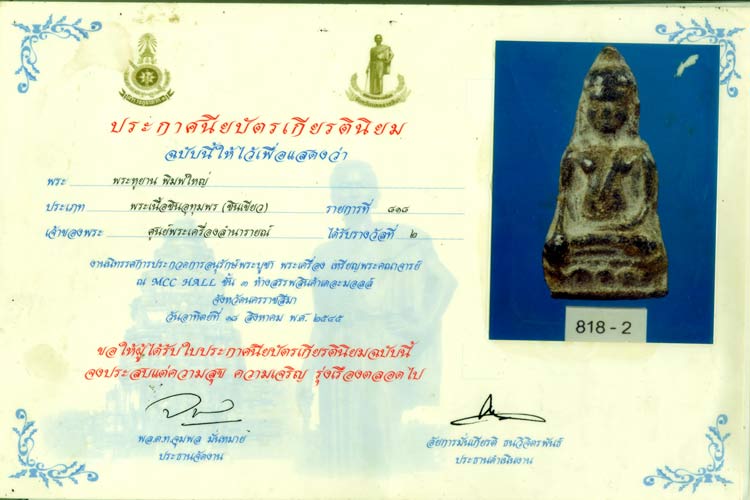 ประกาศนียบัตรเกียรตินิยม
ฉบับนี้ให้ไว้เพื่อแสดงว่า
พระ พระหูยาน พิมพ์ใหญ่
ประเภท พระเนื้อชินอุทุมพร (ชินเขียว) รายการที่ ๘๑๘
เจ้าของพระ ศูนย์พระเครื่องลำนารายณ์ ได้รับรางวัลที่ ๒
งานนิทรรศการประกวดการอนุรักษ์พระบูชา พระเครื่อง เหรียญพระคณาจารย์
ณ MCC HALL ชั้น ๓ ห้างสรรพสินค้าเดอะมอลล์
จังหวัดนครราชสีมา
วันอาทิตย์ที่ ๑๘ สิงหาคม พ.ศ. ๒๕๔๕
ขอให้ผู้ได้รับใบประกาศนียบัตรเกียรตินิยมฉบับนี้
จงประสบแต่ความสุข ความเจริญ รุ่งเรืองตลอดไป
พล.ต.ท.จุมพล มั่นหมาย
ประธานจัดงาน
อัยการมั่นเกียรติ ธนวิจิตรพันธ์
ประธานดำเนินงาน
818-2